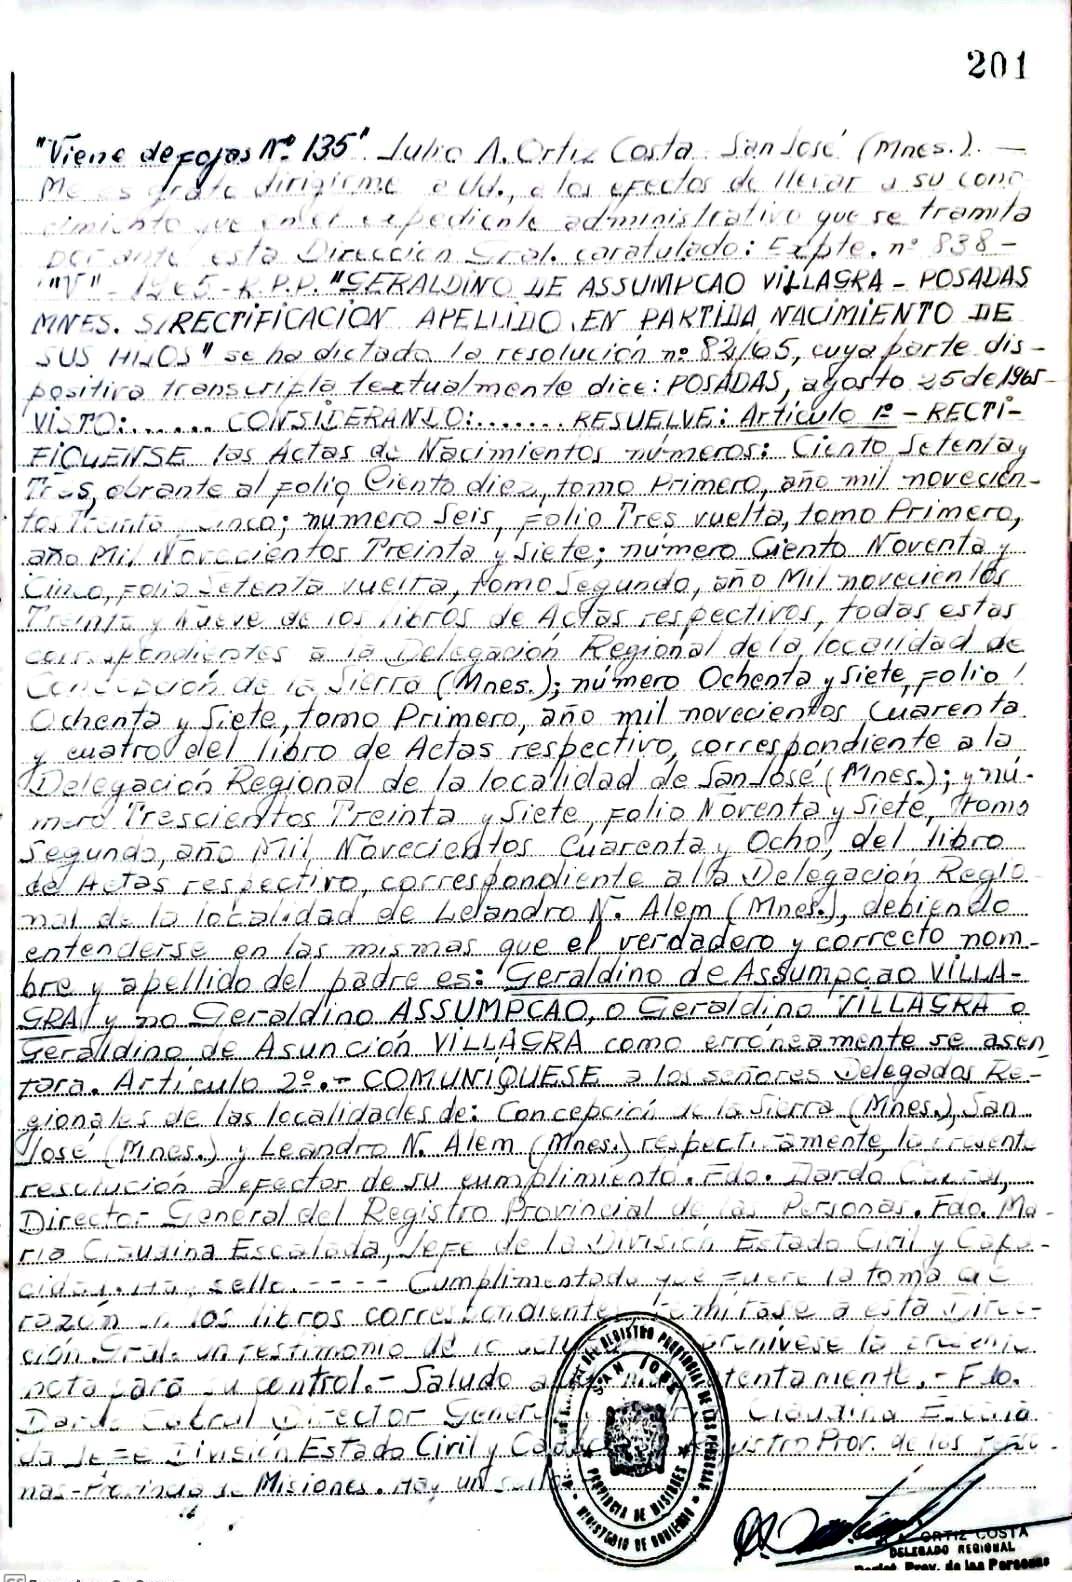 201
"Viene de fojas Nº 135" Julio A. Ortiz Costa. San José (Mnes.). —
Me es grato dirigirme a Ud., a los efectos de llevar a su cono
cimiento que en el expediente administrativo que se tramita
por ante esta Dirección Gral. caratulado: Expte. nº 838 –
"V" - 1965 - R.P.P. "GERALDINO DE ASSUMPCAO VILLAGRA – POSADAS
MNES. S/RECTIFICACION APELLIDO EN PARTIDA NACIMIENTO DE
SUS HIJOS" se ha dictado la resolución nº 82/65, cuya parte dis-
positiva transcripta textualmente dice: POSADAS, agosto 25 de 1965-
VISTO:...... CONSIDERANDO:....... RESUELVE: Artículo 1º - RECTI-
FIQUENSE las Actas de Nacimientos números: Ciento Setenta y
Tres, obrante al folio Ciento diez, tomo Primero, año mil novecien-
tos Treinta Cinco; número Seis, Folio Tres vuelta, tomo Primero,
año Mil Novecientos Treinta y Siete; número Ciento Noventa y
Cinco, Folio Setenta vuelta, tomo Segundo, año Mil novecientos
Treinta y Nueve de los libros de Actas respectivos, todas estas
correspondientes a la Delegación Regional de la localidad de
Concepción de la Sierra (Mnes.); número Ochenta y Siete, Folio
Ochenta y Siete, tomo Primero, año mil novecientos Cuarenta
y cuatro del libro de Actas respectivo, correspondiente a la
Delegación Regional de la localidad de San José (Mnes.); y nú-
mero Trescientos Treinta y Siete, Folio Noventa y Siete, tomo
Segundo, año Mil Novecientos Cuarenta y Ocho, del libro
de Actas respectivo, correspondiente a la Delegación Regio
nal de la localidad de Leandro N. Alem (Mnes.), debiendo
entenderse en las mismas que el verdadero y correcto nom-
bre y apellido del padre es: Geraldino de Assumpcao VILLA-
GRA y no Geraldino ASSUMPCAO, o Geraldino VILLAGRA o
Geraldino de Asunción VILLAGRA como erróneamente se asen
tara. Artículo 2º.- COMUNÍQUESE a los señores Delegados Re-
gionales de las localidades de: Concepción de la Sierra (Mnes.), San
José (Mnes.) y Leandro N. Alem (Mnes.) respectivamente, la presente
resolución a efector de su cumplimiento. Fdo. Dardo Cabral,
Director General del Registro Provincial de las Personas. Fdo. Ma-
ria Claudina Escalada, Jefe de la División Estado Civil y Capa-
cidad. Hay sello. - - - - Cumplimentado que fuere la toma de
razón en los libros correspondientes remitirase a esta Direc-
ción Gral. un testimonio de lo archívese la presente
nota para su control.- Saludo a atentamente. - Fdo.
Dardo Cabral Director General Claudina Escala
da Jefe División Estado Civil y Capac Registro Prov. de las Perso-
nas - Provincia de Misiones. Hay un sello
REGISTRO PROVINCIAL DE LAS PERSONAS
SAN JOSE
PROVINCIA DE MISIONES
MINISTERIO DE GOBIERNO
ORTIZ COSTA
DELEGADO REGIONAL
Regist. Prov. de las Personas